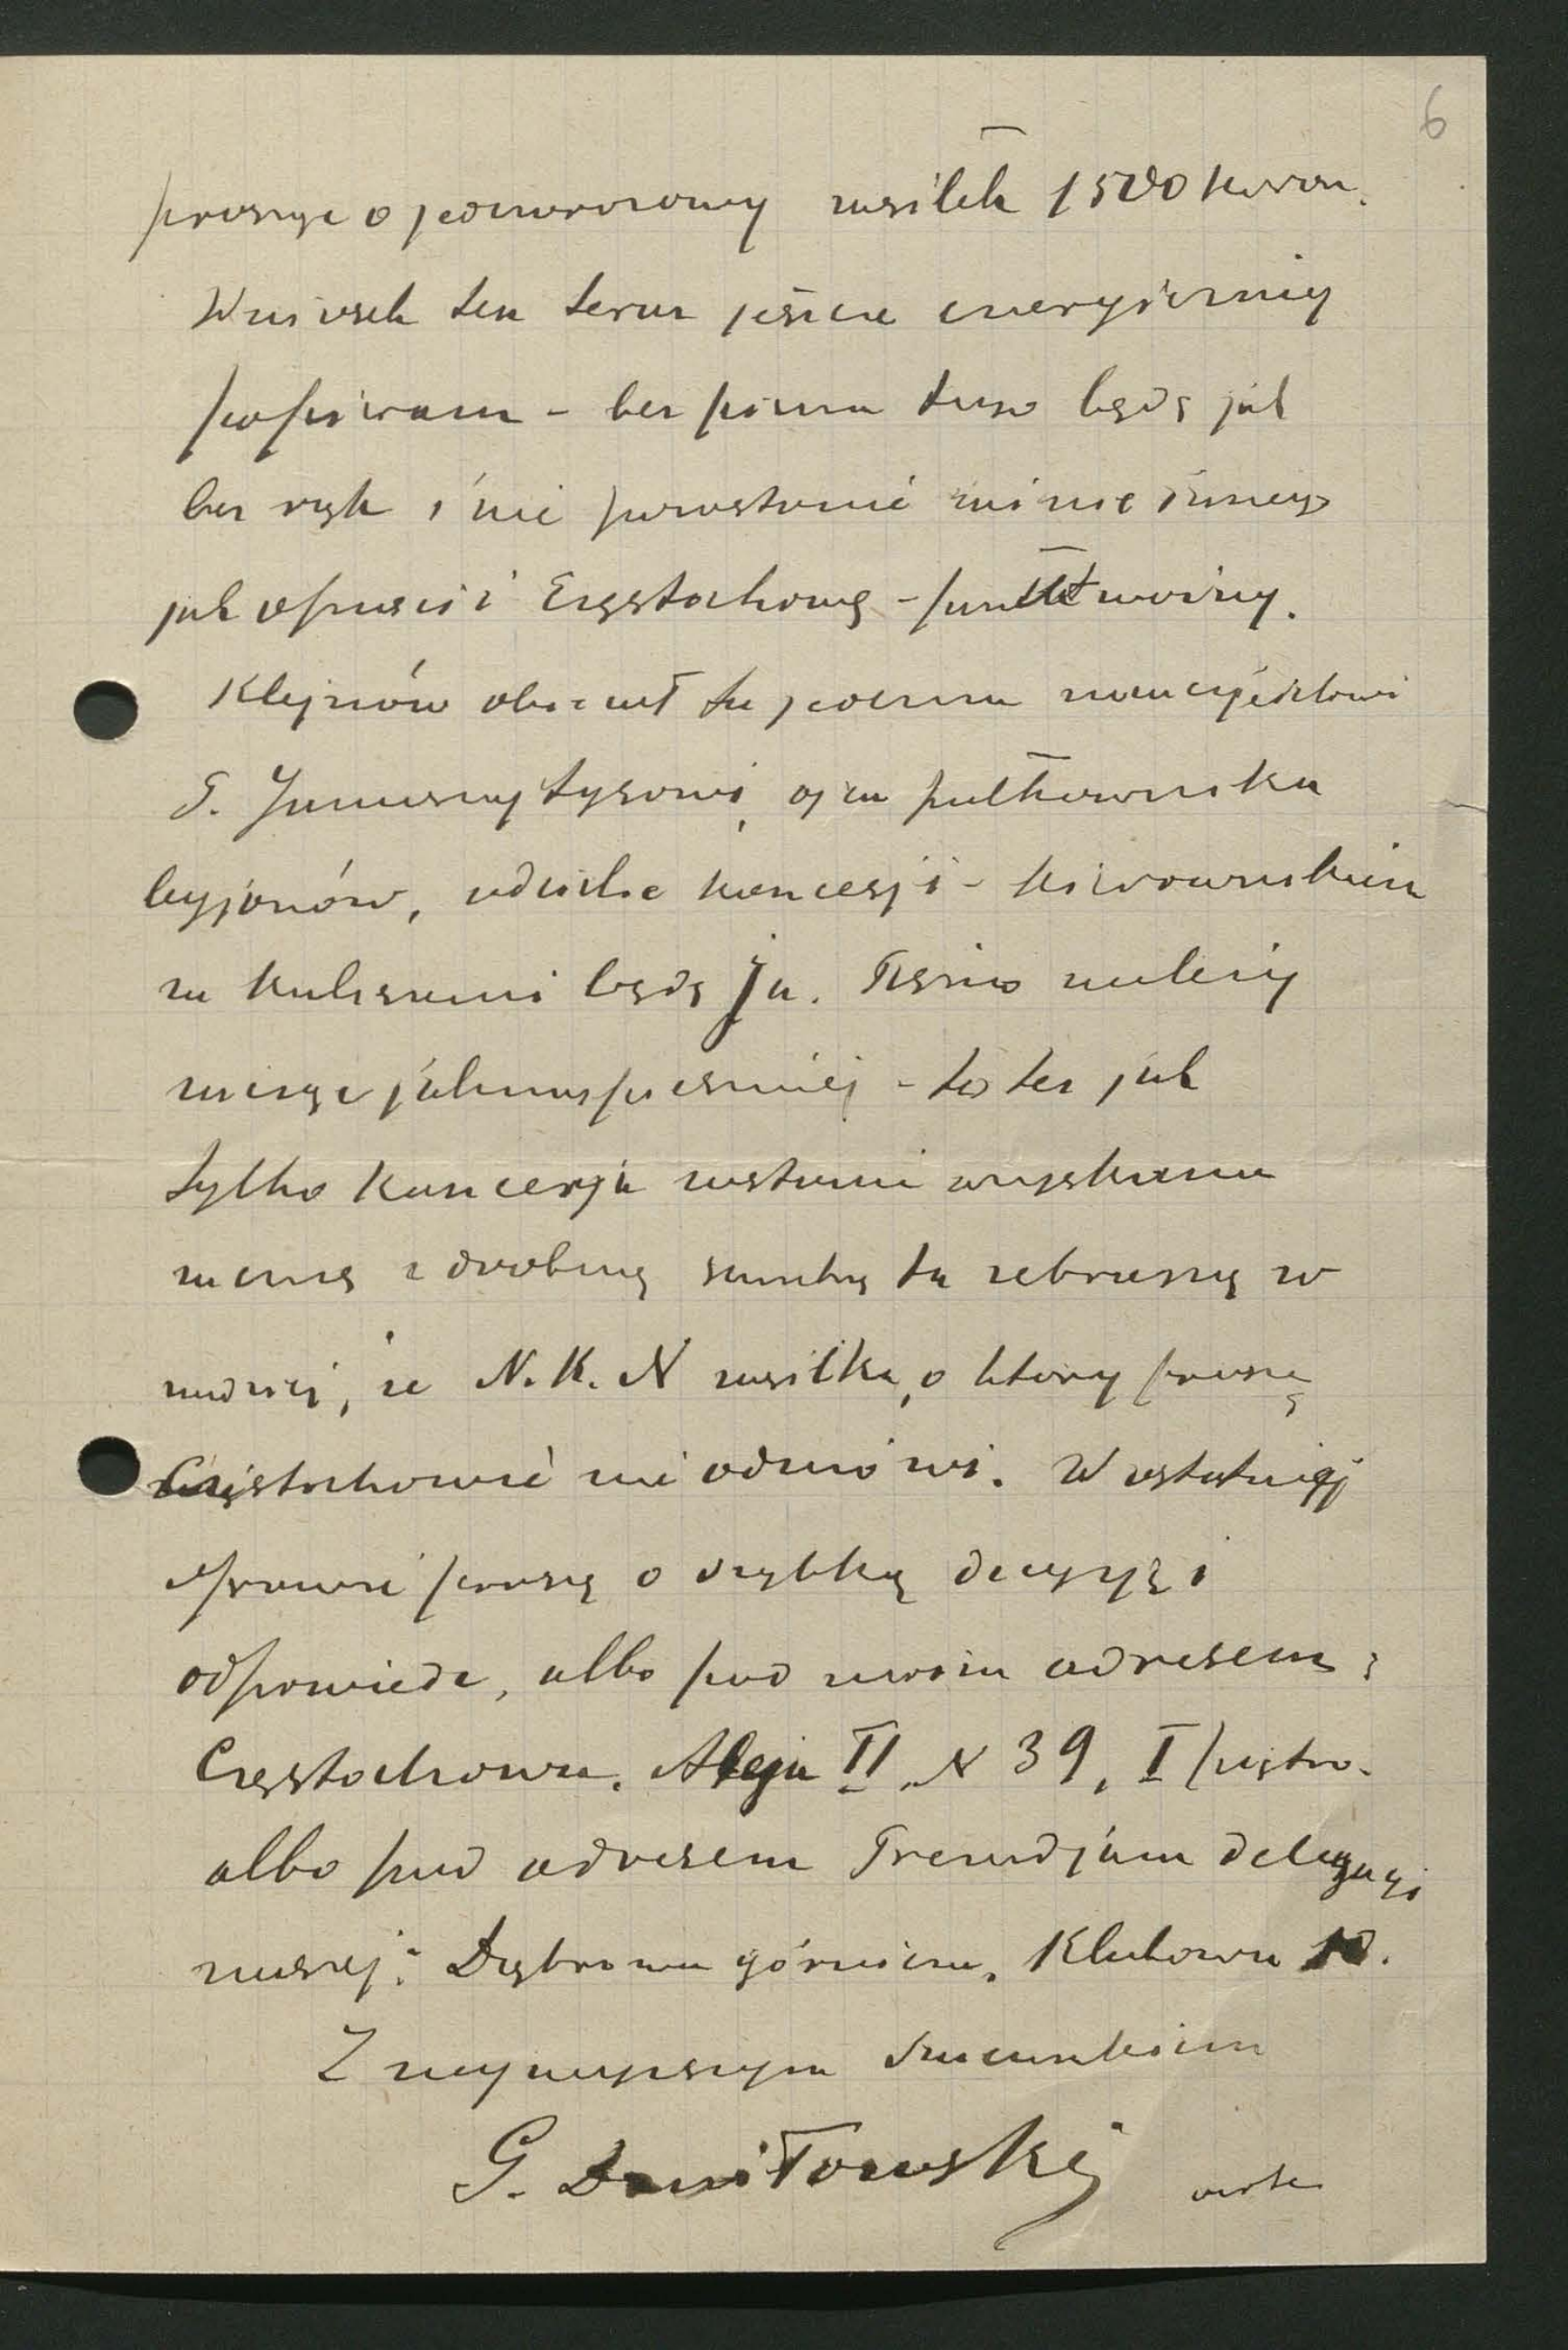 6
prosząc o jednorazowy zasiłek 1500 koron.
Wniosek ten teraz jeszcze energiczniej
popieram – bez pisma tego będę jak
bez rąk i nie pozostanie mi nic innego
jak opuścić Częstochowę – punkt ważny.
Klejnów obiecał tu jednemu nauczycielowi
P. Januszajtysowi, ojcu pułkownika
legjonów, udzielić koncesji – kierownikiem
za kulisami będę Ja. Pismo należy
zacząc jaknajspieszniej – to też jak
tylko koncesja zostanie uzyskana
zacznę z drobną sumką tu zebraną w
nadziei, że N.K.N zasiłku, o ktory proszę
Częstochowie nie odmówi. W ostatniej
sprawie proszę o szybką decyzję i
odpowiedz, albo pod moim adresem:
Częstochowa. Aleja II. N 39, I piętro.
albo pod adresem Prezydjum delegacyi
naszej: Dąbrowa górnicza. Klubowa 10.
Z najwyższym szacunkiem
G. Daniłowski
verte